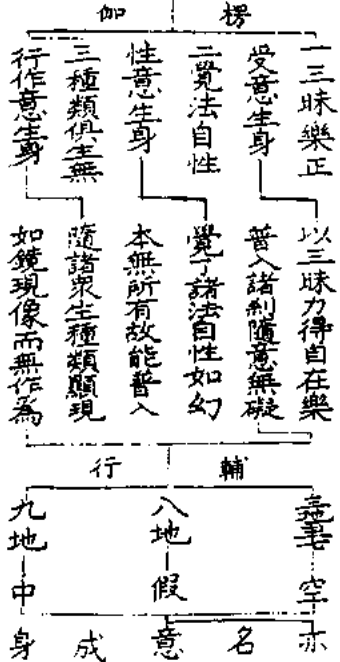 楞伽
一三昧樂正
受意生身
二覺法自性
性意生身
三種類俱生無
行作意生身
以三昧力得自在樂
普入諸剎隨意無礙
覺了諸法自性如幻
本無所有故能普入
隨諸衆生種類顯現
如鏡現像而無作為
輔行
空
八地
假
九地
中
亦名意成身